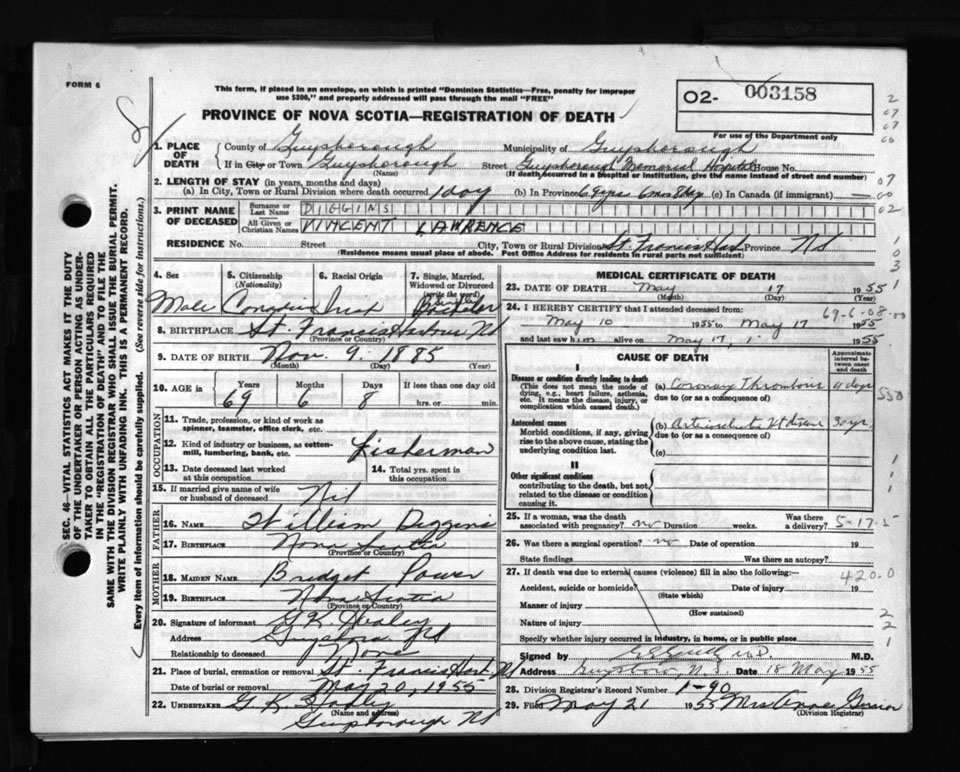 FORM 6
This form, if placed in an envelope, on which is printed "Dominion Statistics—Free, penalty for improper
use $300," and properly addressed will pass through the mail "FREE"
PROVINCE OF NOVA SCOTIA—REGISTRATION OF DEATH
O2- 003158
For use of the Department only
1. PLACE OF DEATH
County of Guysborough Municipality of Guysborough
If in City or Town Guysborough Street Guysborough Memorial Hospital House No.
(Name) (If death occurred in a hospital or institution, give the name instead of street and number)
2. LENGTH OF STAY (in years, months and days)
(a) In City, Town or Rural Division where death occurred 1 day (b) In Province 69 yrs 6 mos 8 day (c) In Canada (if immigrant)
3. PRINT NAME OF DECEASED
Surname or Last Name DIGGINS
All Given or Christian Names VINCENT LAWRENCE
RESIDENCE No. Street City, Town or Rural Division St. Francis Harb Province NS
(Residence means usual place of abode. Post Office Address for residents in rural parts not sufficient)
4. Sex 5. Citizenship (Nationality) 6. Racial Origin 7. Single, Married, Widowed or Divorced (write the word)
Male Canadian Irish Bachelor
8. BIRTHPLACE St. Francis Harbour NS
(Province or Country)
9. DATE OF BIRTH Nov. 9. 1885
(Month) (Day) (Year)
10. AGE in Years Months Days If less than one day old
69 6 8 hrs. or min.
OCCUPATION
11. Trade, profession, or kind of work as spinner, teamster, office clerk, etc.
12. Kind of industry or business, as cotton-mill, lumbering, bank, etc. Fisherman
13. Date deceased last worked at this occupation
14. Total yrs. spent in this occupation
15. If married give name of wife or husband of deceased Nil
FATHER
16. NAME William Diggins
17. BIRTHPLACE Nova Scotia
(Province or Country)
MOTHER
18. MAIDEN NAME Bridget Power
19. BIRTHPLACE Nova Scotia
(Province or Country)
20. Signature of informant G. K. Hadley
Address Guysboro NS
Relationship to deceased None
21. Place of burial, cremation or removal St. Francis Harb NS
Date of burial or removal May 20, 1955
22. UNDERTAKER G. K. Hadley
(Name and address)
Guysborough NS
MEDICAL CERTIFICATE OF DEATH
23. DATE OF DEATH May 17 1955
(Month) (Day) (Year)
24. I HEREBY CERTIFY that I attended deceased from:
69-6-08-00
May 10 1955 to May 17 1955
and last saw him alive on May 17, 1955
CAUSE OF DEATH
Approximate interval between onset and death
I
Disease or condition directly leading to death
(This does not mean the mode of dying, e.g., heart failure, asthenia, etc. It means the disease, injury, or complication which caused death.)
(a) Coronary Thrombosis 11 days
due to (or as a consequence of)
Antecedent causes
Morbid conditions, if any, giving rise to the above cause, stating the underlying condition last.
(b) Ht disease 30 yrs
due to (or as a consequence of)
(c)
II
Other significant conditions
contributing to the death, but not related to the disease or condition causing it.
25. If a woman, was the death associated with pregnancy? no Duration weeks. Was there a delivery? 5-17-5
26. Was there a surgical operation? no Date of operation 19
State findings Was there an autopsy?
27. If death was due to external causes (violence) fill in also the following:—
420.0
Accident, suicide or homicide? Date of injury 19
(State which)
Manner of injury
(How sustained)
Nature of injury
Specify whether injury occurred in industry, in home, or in public place
Signed by M.D. M.D.
Address Guysboro, N.S. Date 18 May 1955
28. Division Registrar's Record Number 1-90
29. Filed May 21 1955 Mrs Anne
(Division Registrar)
SEC. 46—VITAL STATISTICS ACT MAKES IT THE DUTY
OF THE UNDERTAKER OR PERSON ACTING AS UNDER-
TAKER TO OBTAIN ALL THE PARTICULARS REQUIRED
IN THE "REGISTRATION OF DEATH" AND TO FILE THE
SAME WITH THE DIVISION REGISTRAR WHO SHALL ISSUE THE BURIAL PERMIT.
WRITE PLAINLY WITH UNFADING INK. THIS IS A PERMANENT RECORD.
Every item of information should be carefully supplied. (See reverse side for instructions.)